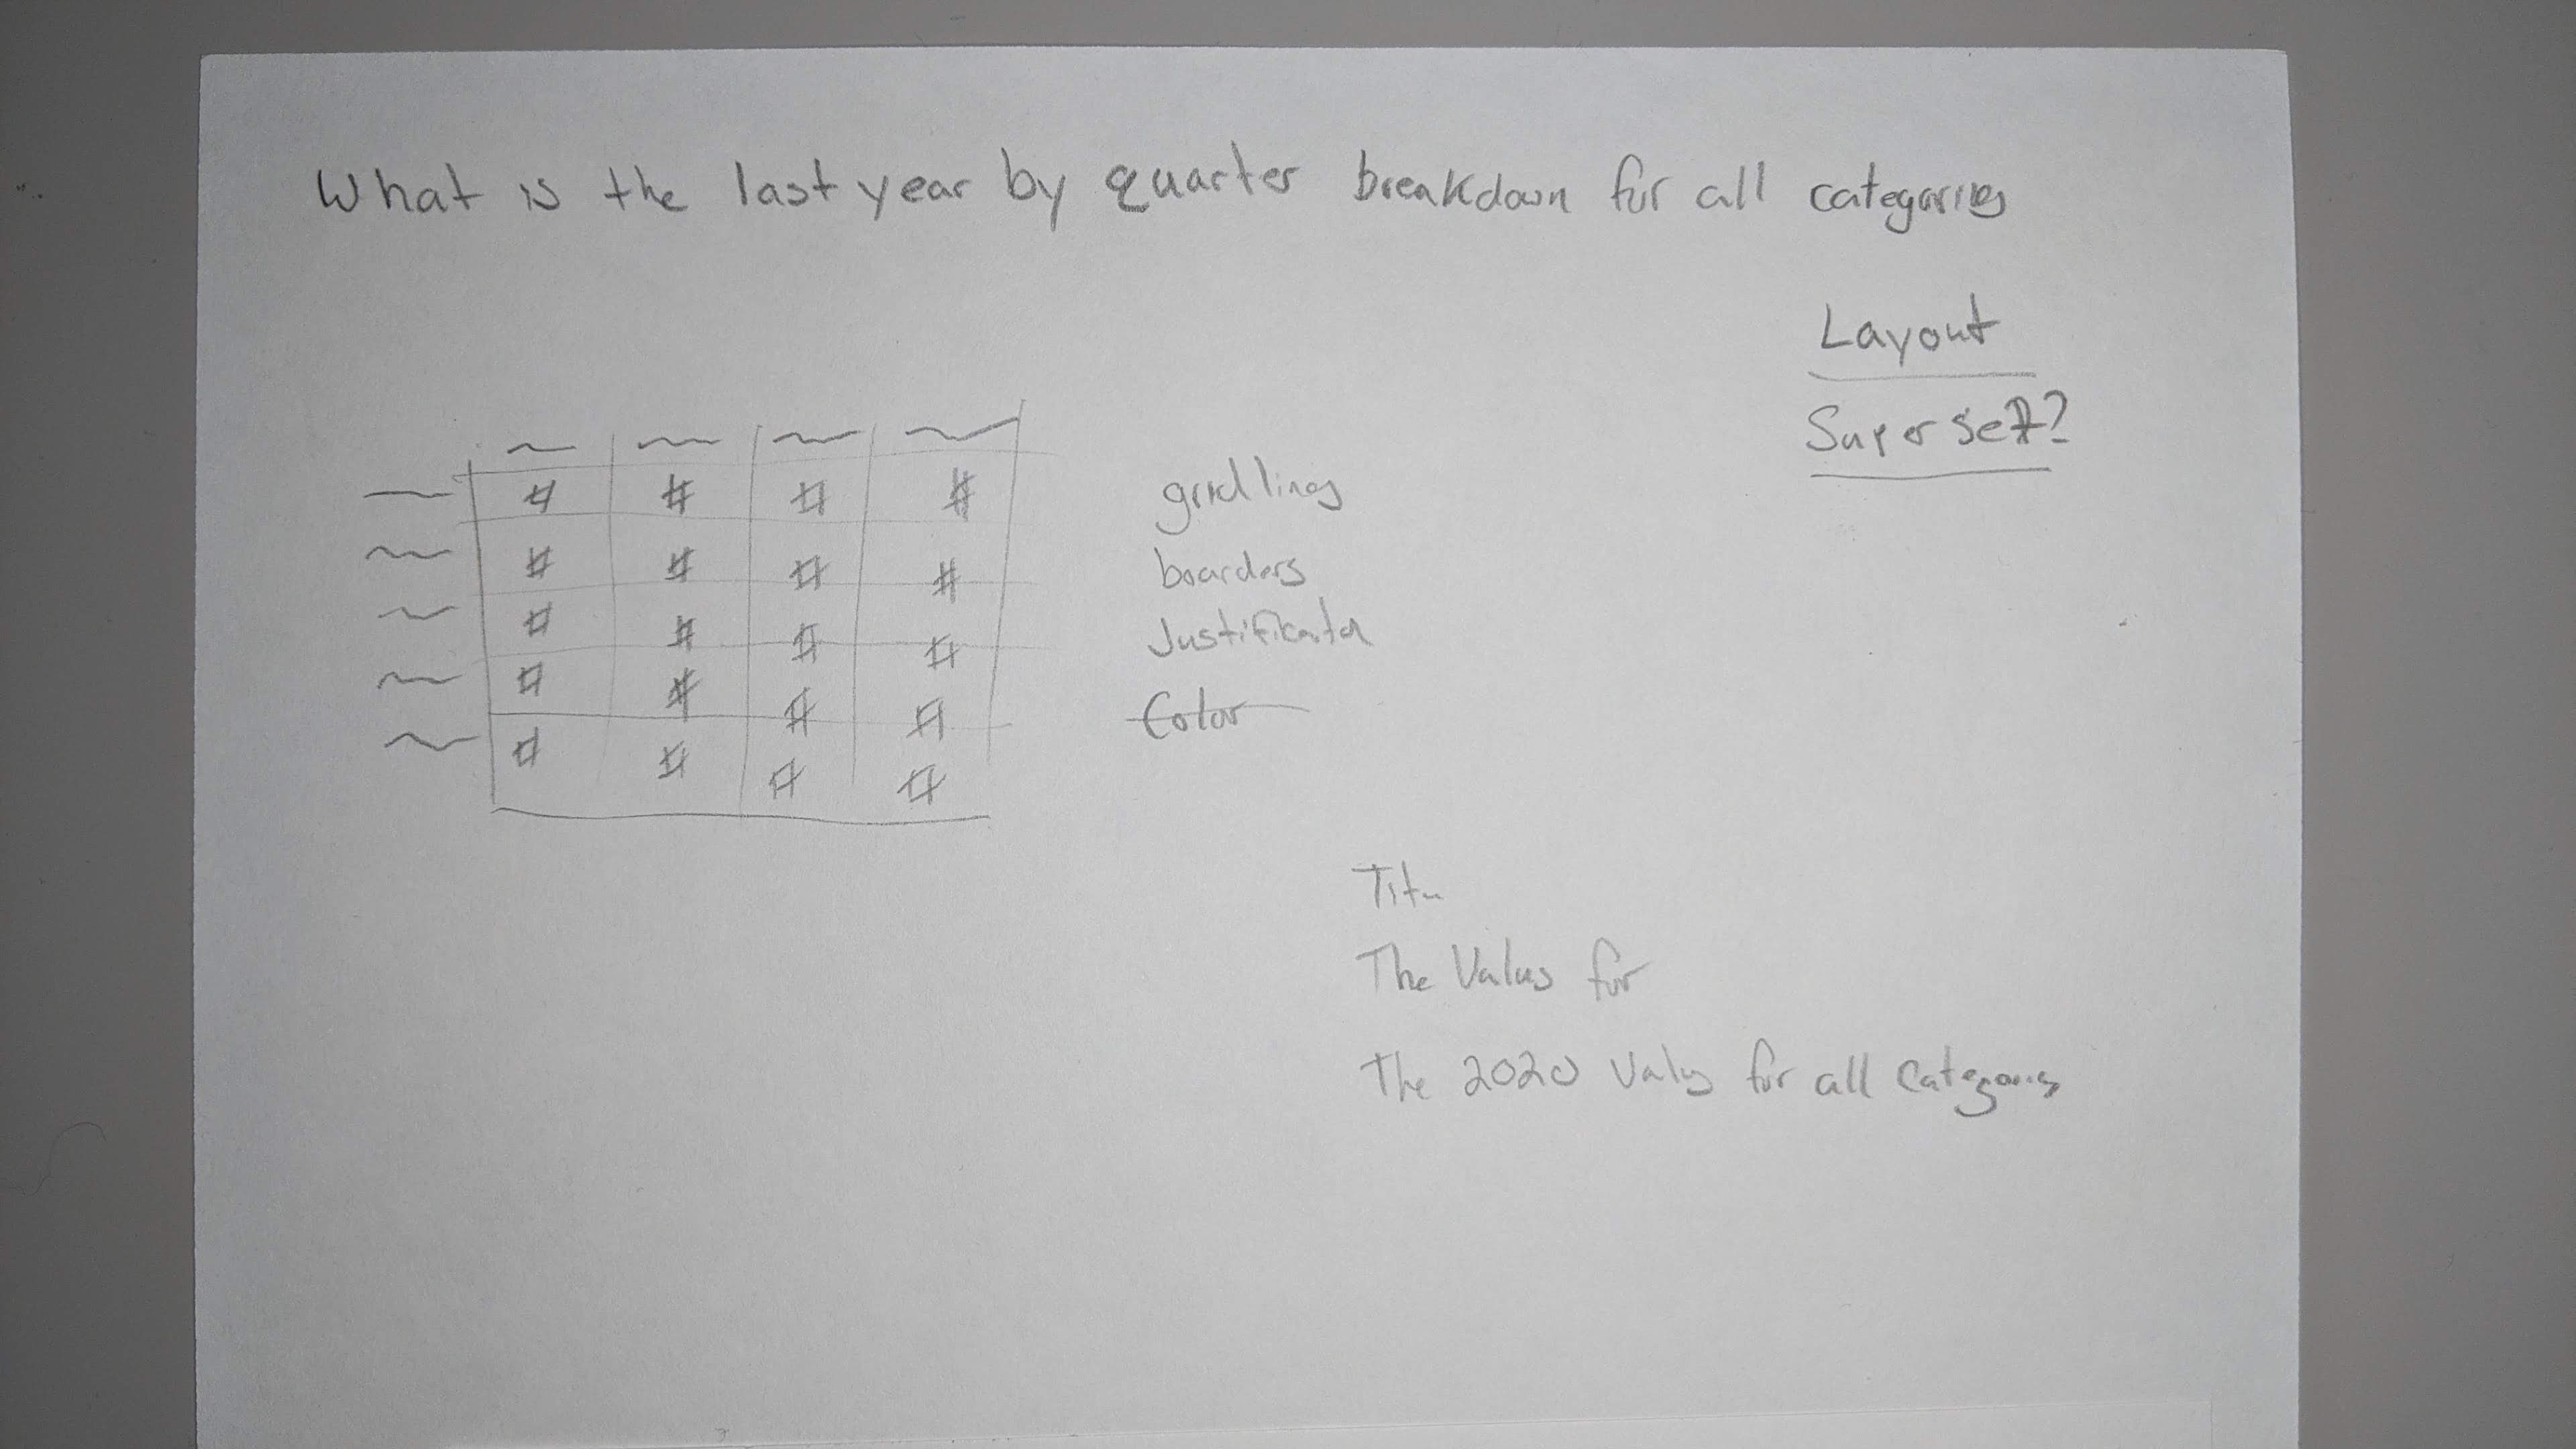 What is the last year by quarter breakdown for all categories
Layout
Superset?
# # # #
# # # #
# # # #
# # # #
# # # #
gridlines
boarders
Justification
Color
The Values for
The 2020 Values for all categories